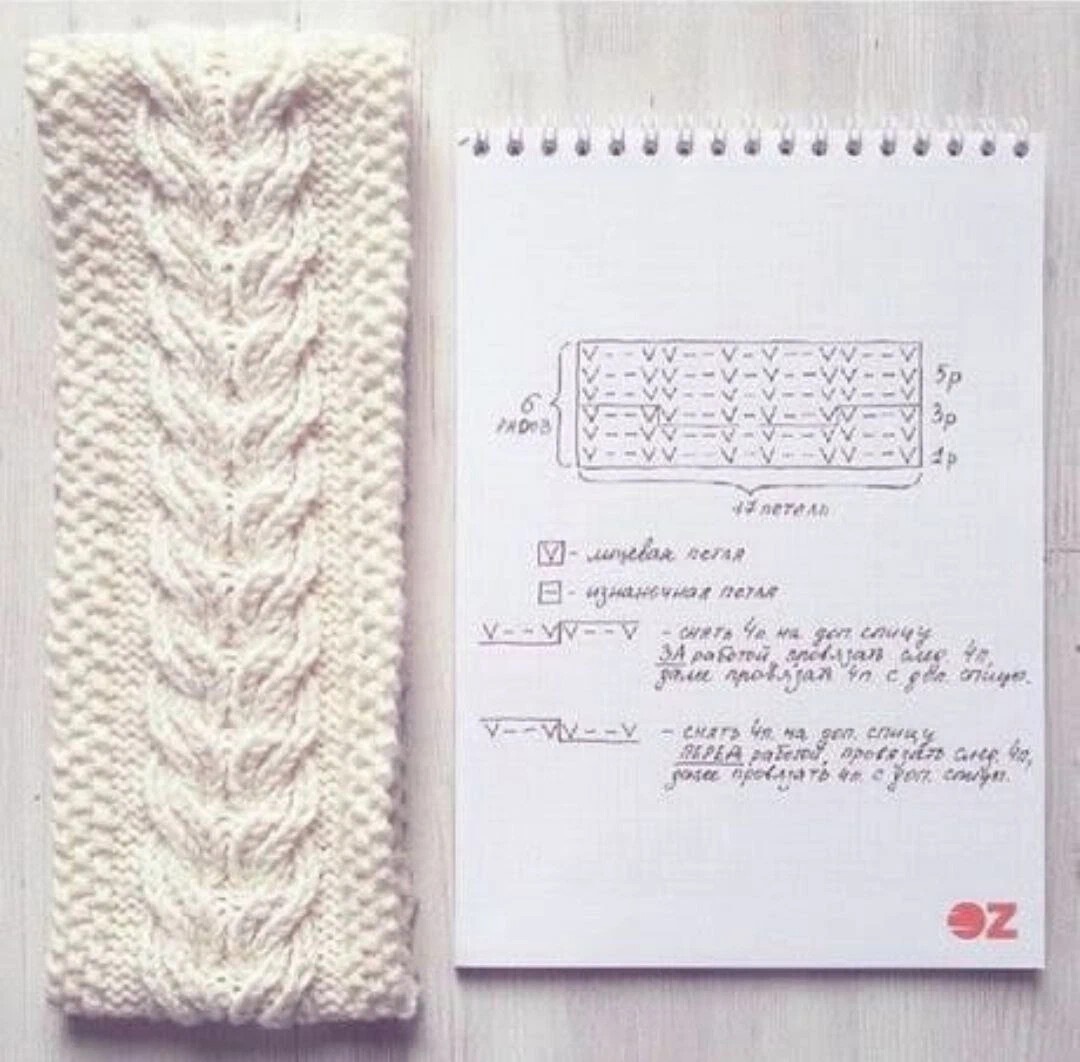 V - - V V - - V - V - - V V - - V
V - - V V - - V - V - - V V - - V 5р
V - - V V - - V - V - - V V - - V
6 рядов V - - V V - - V - V - - V V - - V 3р
V - - V V - - V - V - - V V - - V
V - - V V - - V - V - - V V - - V 1р
17 петель
V - лицевая петля
- - изнаночная петля
V - - V V - - V - снять 4п. на доп. спицу
ЗА работой, провязать след. 4п,
далее провязать 4п с доп. спицы.
V - - V V - - V - снять 4п. на доп. спицу
ПЕРЕД работой, провязать след. 4п,
далее провязать 4п. с доп. спицы.
OZ